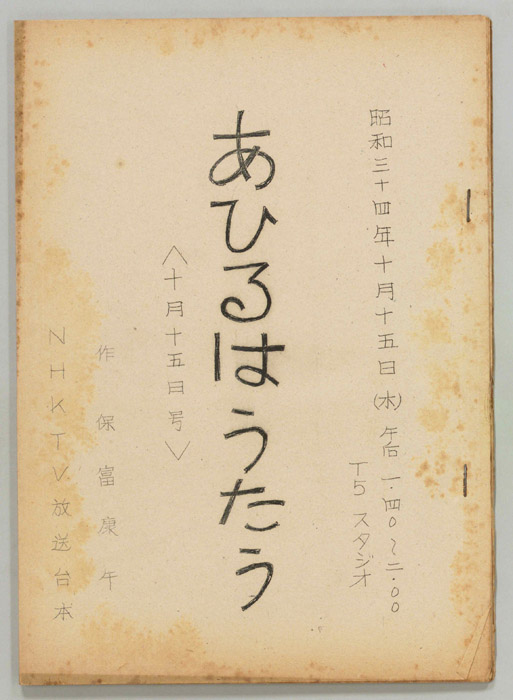 昭和三十四年十月十五日(木)午后一.四〇〜二.〇〇
T5 スタジオ
あひるはうたう
〈十月十五日号〉
作 保富康午
NHKTV放送台本